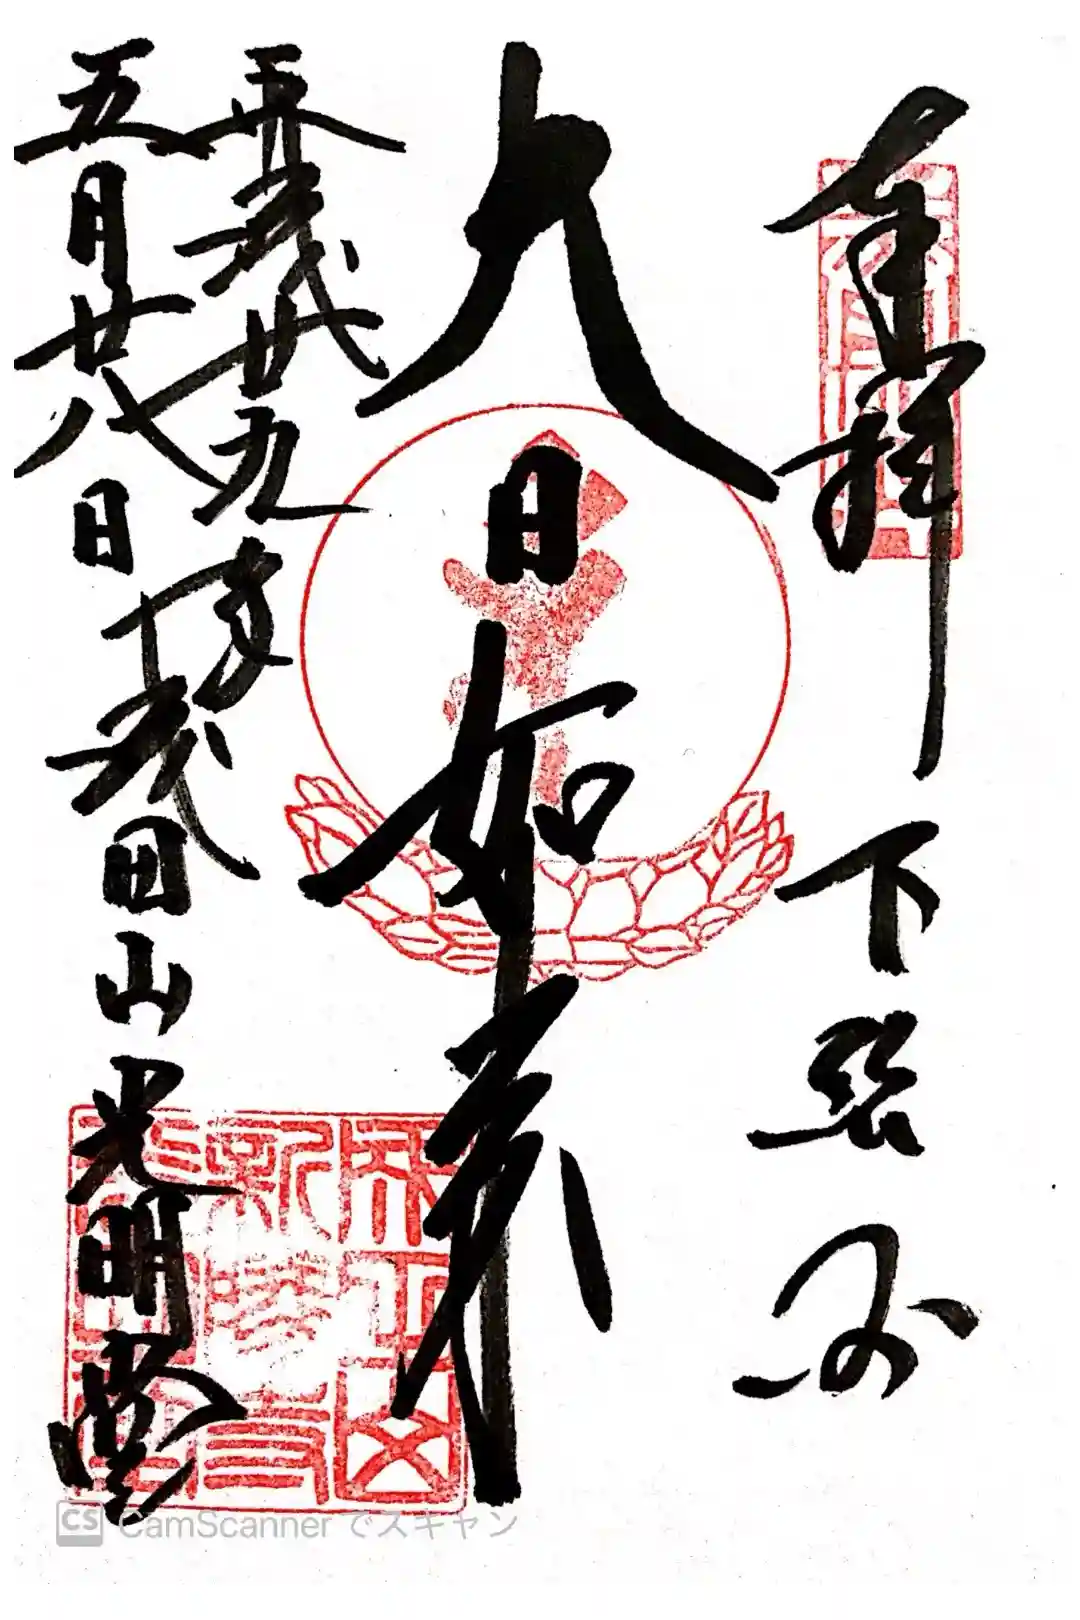 奉拝 下総国
大日如来
平成廿九年
五月廿八日 成田山光明堂
成田山
新勝寺
CS CamScanner でスキャン